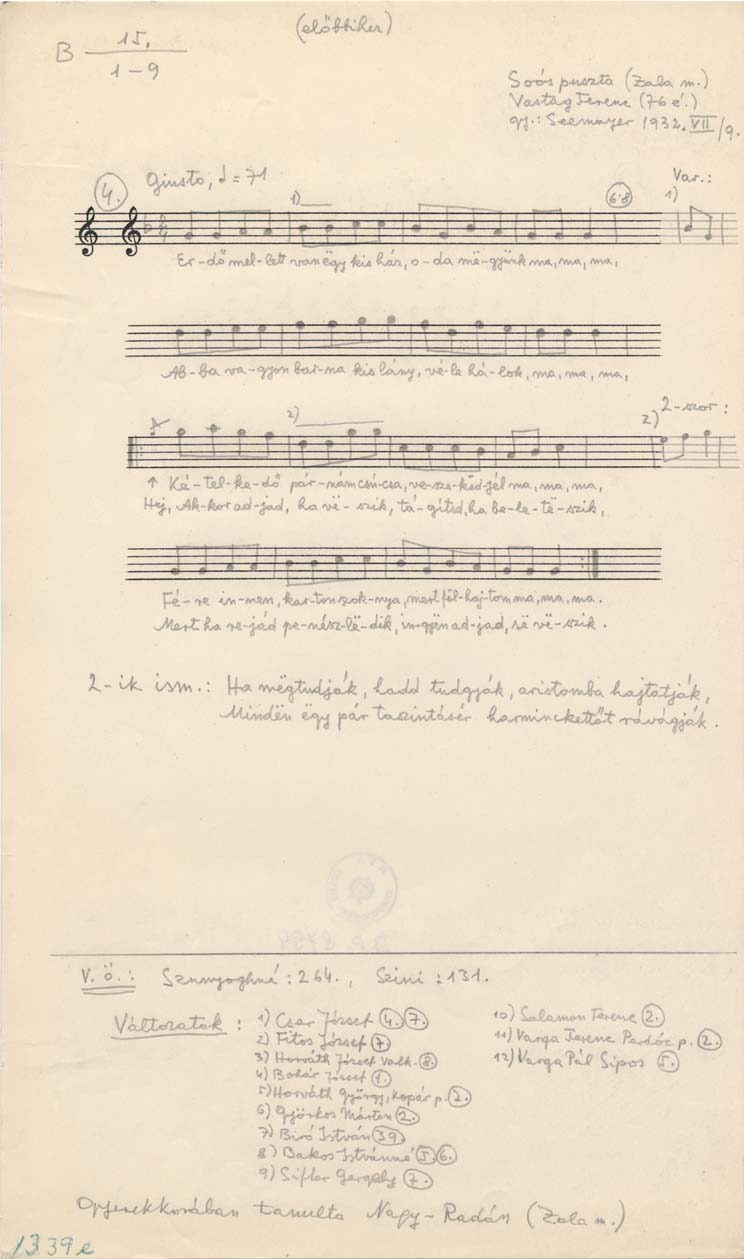 (előbbihez)
B 15.
1-9
Soós puszta (Zala m.)
Vastag Ferenc (76 é.)
gy.: Seemayer 1932. VII/9.
4. Giusto, ♩ = 71
1)
6·8
Var.: 1)
Er-dő mel-lett van ëgy kis ház, o-da më-gyünk ma, ma, ma,
Ab-ba va-gyon bar-na kis lány, vé-le há-lok, ma, ma, ma,
2)
2) 2-szor:
↑ Ké-tel-ke-dő pár-nám csú-csa, ve-sze-këdj-él ma, ma, ma,
Hej, Ak-kor ad-jad, ha vë-szik, tá-gítsd, ha be-le-të-szik,
Fé-re in-nen, kar-ton szok-nya, mert föl-haj-tom ma, ma, ma.
Mert ha re-jád pe-nész-lë-dik, in-gyën ad-jad, së vë-szik.
2-ik ism.: Ha mëgtudják, hadd tudgyák, aristomba hajtatják,
Mindën ëgy pár taszintásér harminckettőt rávágják.
V. ö.: Szunyoghné: 264., Szini: 131.
Változatok: 1) Cser József 4. 7.
2) Fitos József 7
3) Horváth József Valk. 8.
4) Bohár József 1.
5) Horváth György, Kopár p. 2.
6) Györkos Márton 2.
7) Biró István 39.
8) Bakos Istvánné 5. 6.
9) Sifter Gergely 7.
10) Salamon Ferenc 2.
11) Varga Ferenc Perdóc p. 2.
12) Varga Pál Sipos 5.
Gyerekkorában tanulta Nagy-Radán (Zala m.)
1339e